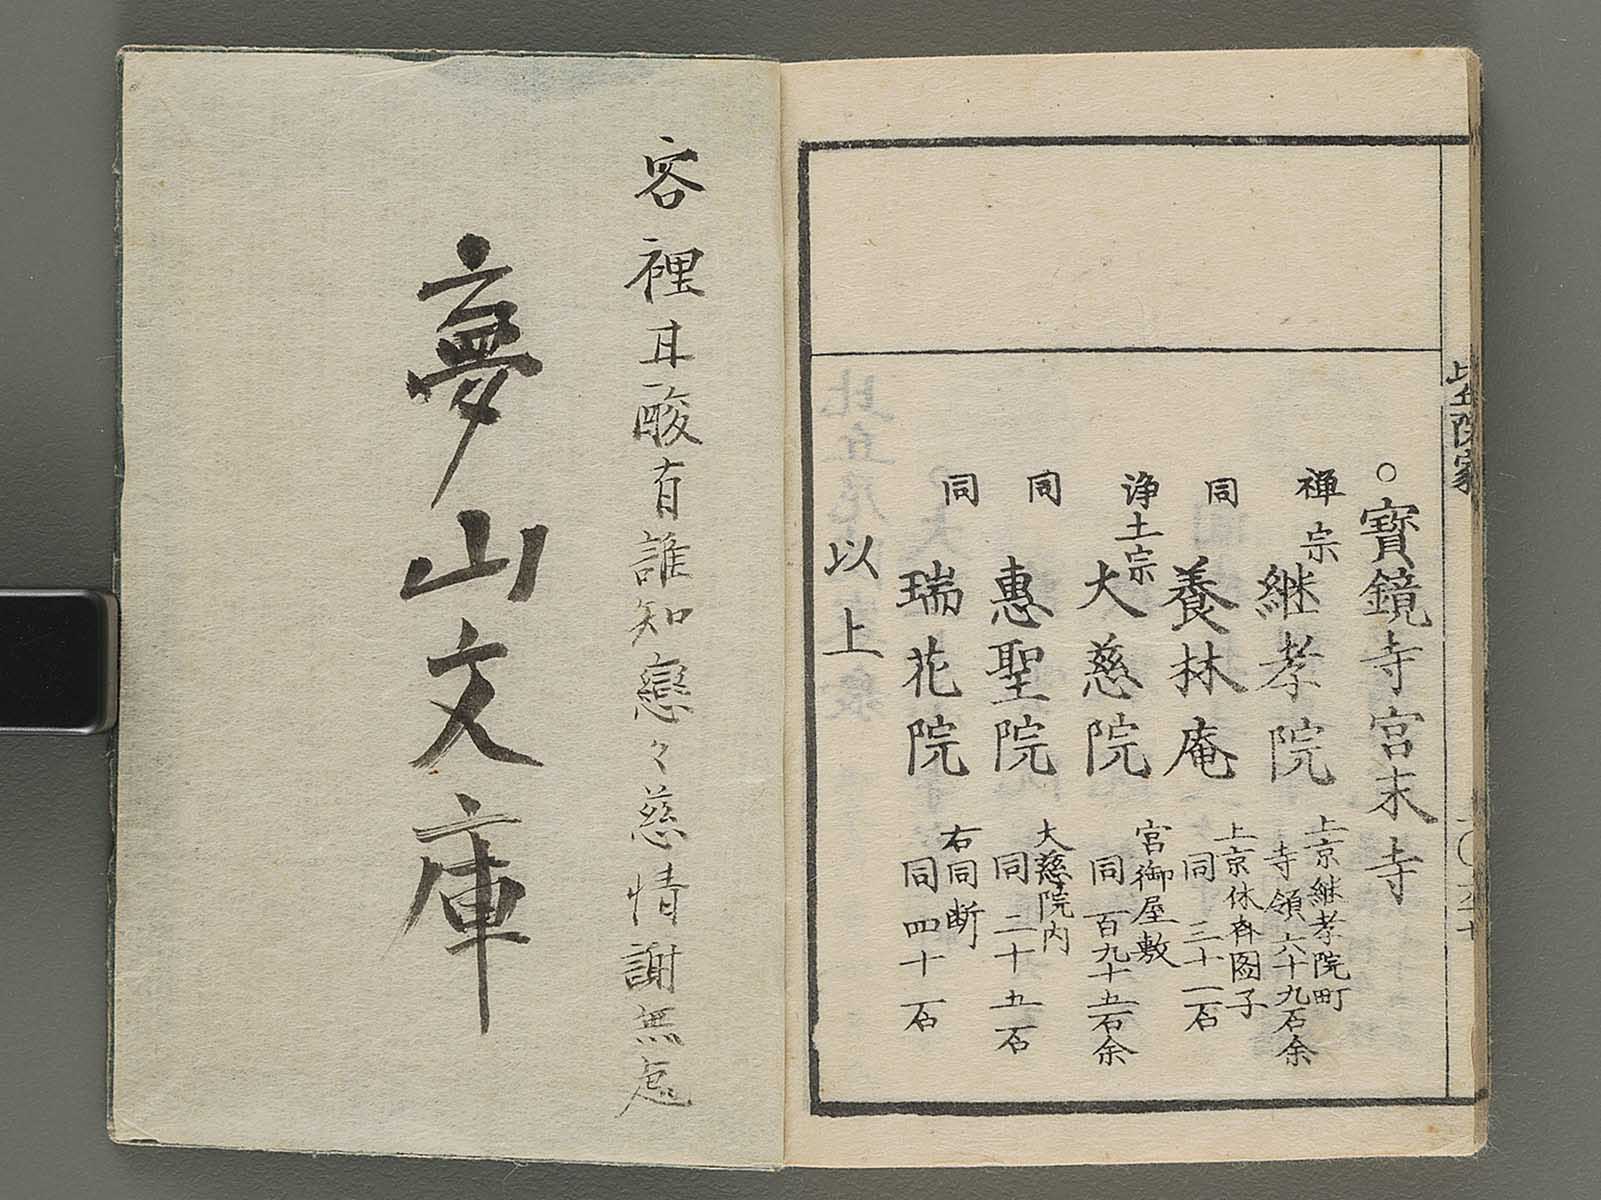 ○寶鏡寺宮末寺
禅宗 継孝院 上京継孝院町 寺領六十九石余
同 養林庵 上京休斉図子 同三十一石
浄土宗 大慈院 宮御屋敷 同百九十五石余
同 惠聖院 大慈院内 同二十五石
同 瑞花院 右同断 同四十石
以上
客裡甘酸有誰知戀々慈情謝無
夢山文庫